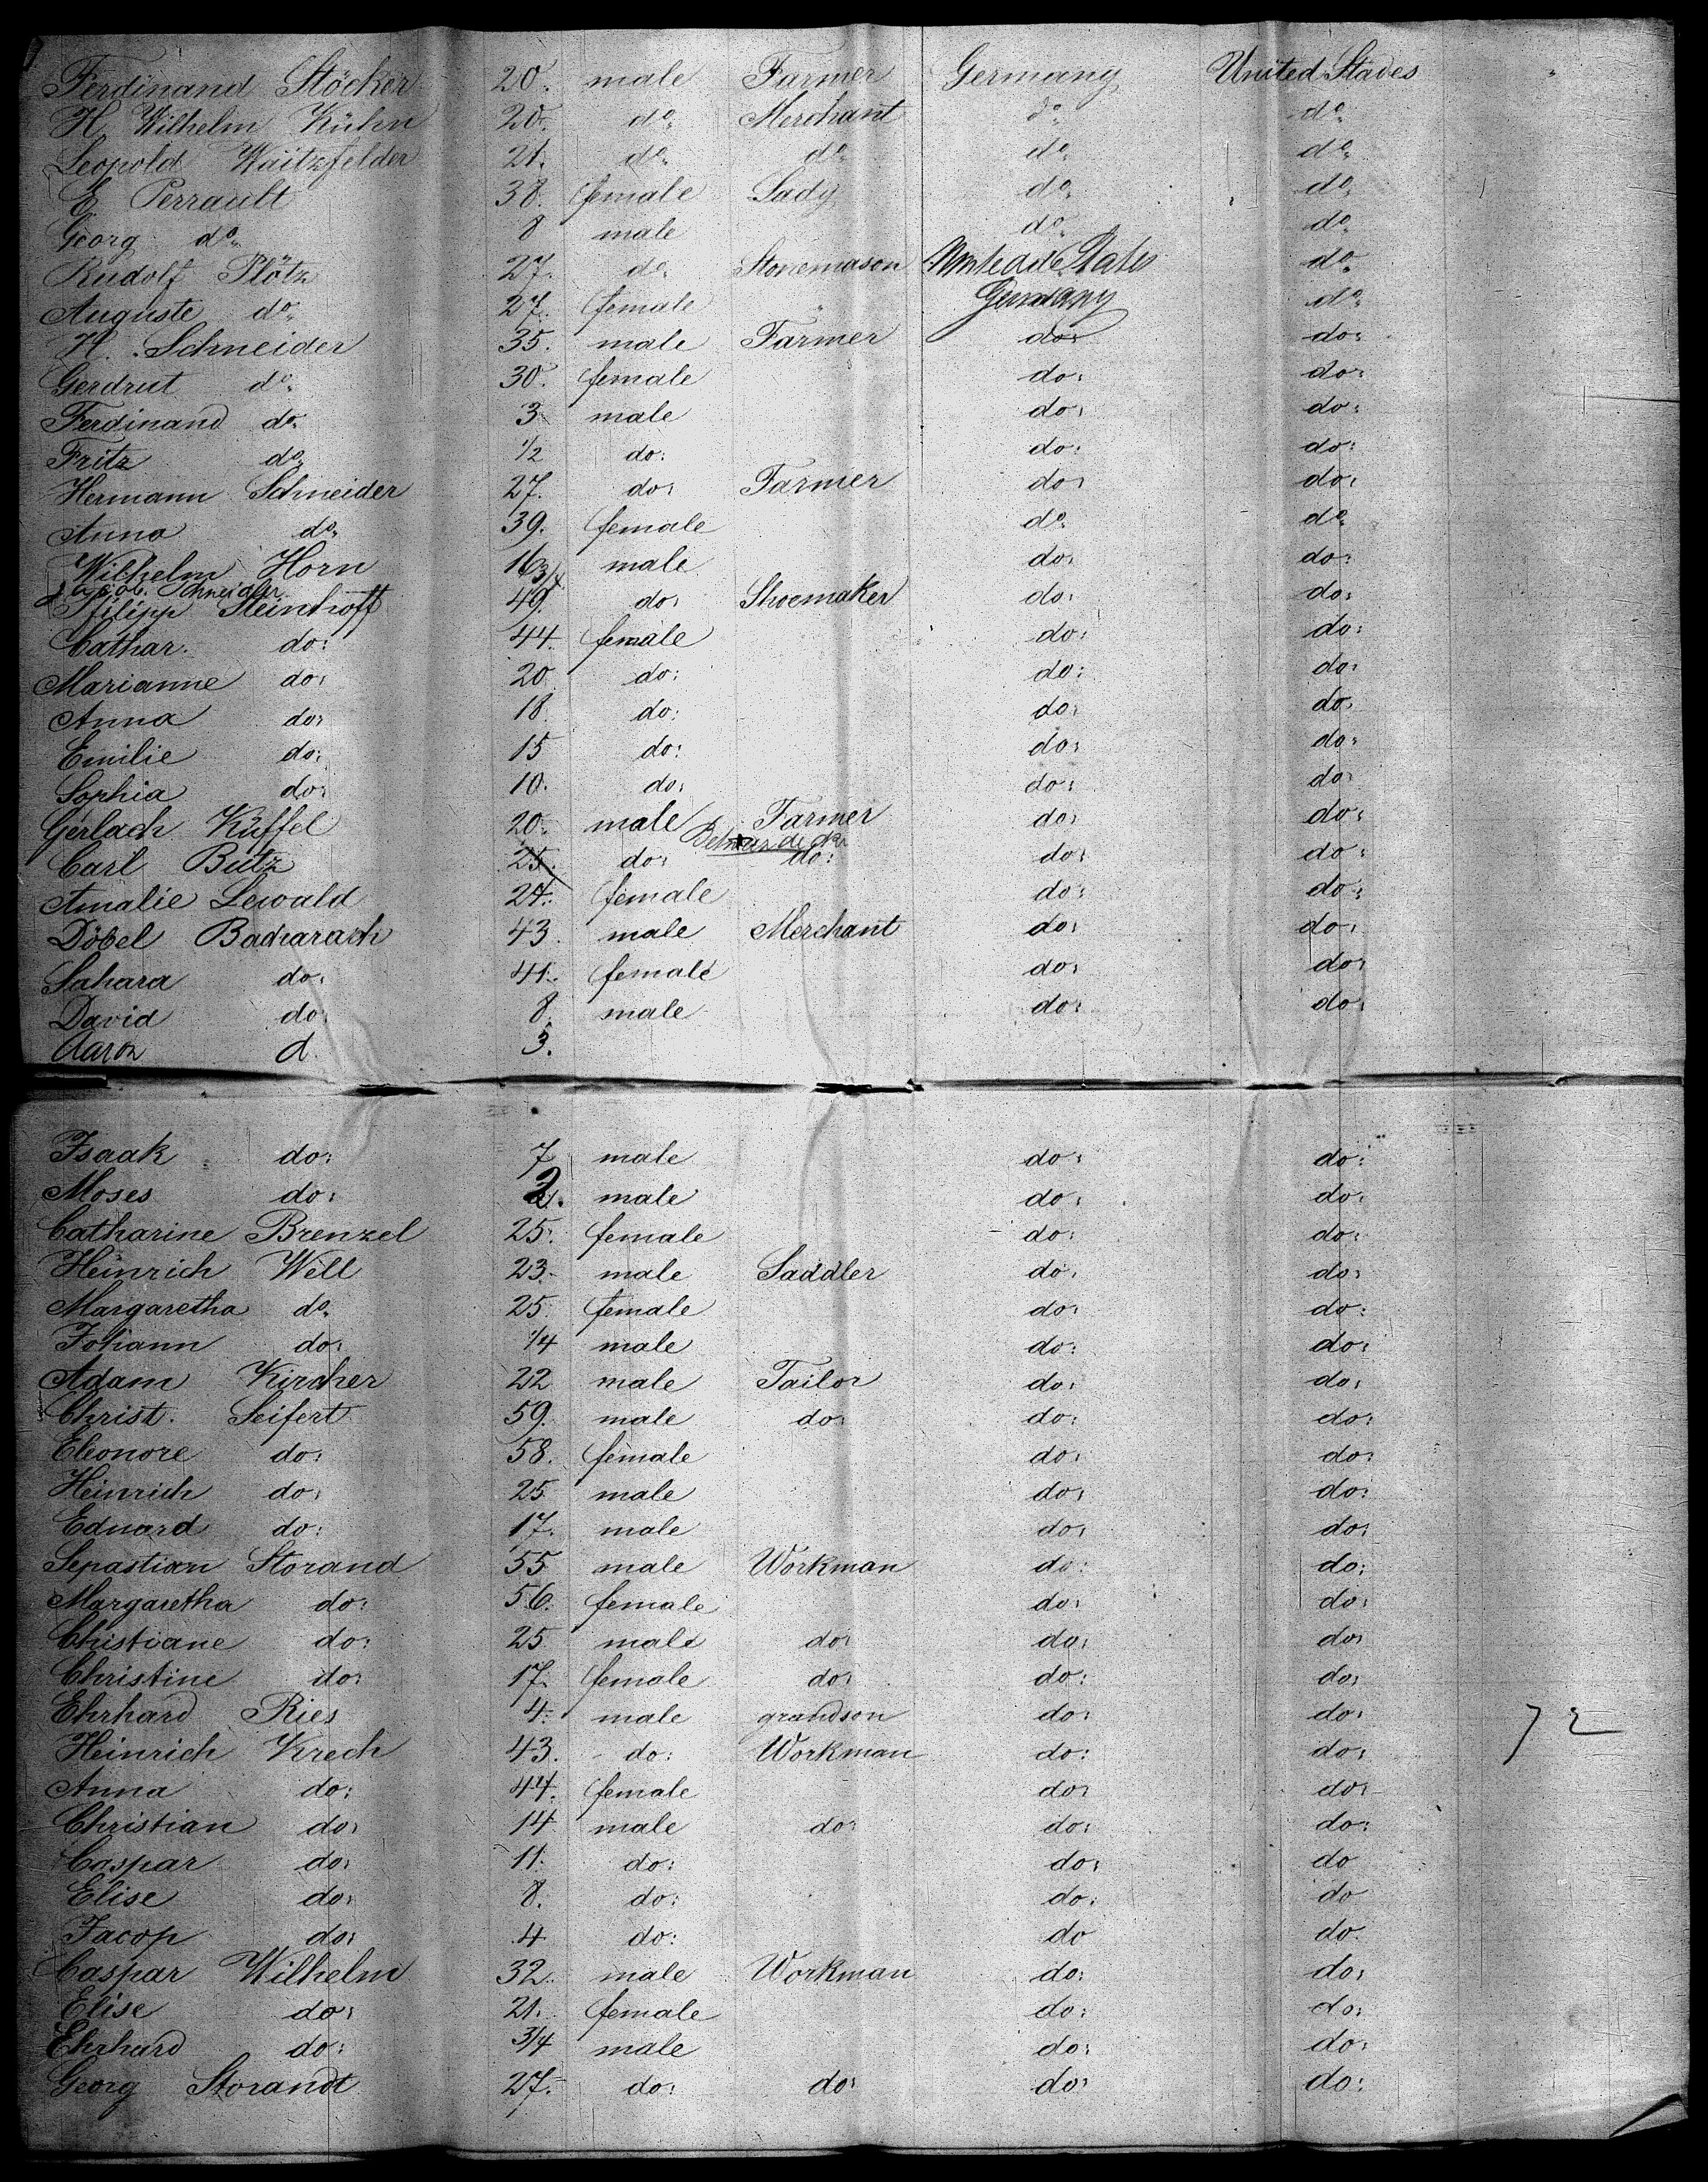 Ferdinand Stöcker 20. male Farmer Germany United Stades
H. Wilhelm Kühn 20. do. Merchant do. do.
Leopold Waitzfelder 21. do. do. do. do.
E. Perrault 38. female Lady do. do.
Georg do. 8 male do. do.
Rudolf Plötz 27. do. Stonemason States do.
Auguste do. 27. female Germany do.
H. Schneider 35. male Farmer do: do:
Gerdrut do. 30. female do: do:
Ferdinand do. 3 male do: do:
Fritz do. 1/2 do: do: do:
Hermann Schneider 27. do: Farmer do: do:
Anna do. 39. female do. do.
Wilhelm Horn 16 male do: do:
Jacob. Schneider 3/4
Philipp Steinhoff 49. do: Shoemaker do: do:
Cathar. do: 44. female do: do:
Marianne do: 20 do: do: do:
Anna do: 18. do: do: do:
Emilie do: 15 do: do: do:
Sophia do: 10. do: do: do:
Gerlach Küffel 20. male Farmer do: do:
Carl Butz 25. do: do: do: do:
Amalie Lewald 24. female do: do:
Döbel Bacharach 43. male Merchant do: do:
Sahara do: 41. female do: do:
David do: 8. male do: do:
Aaron d. 3.
Isaak do: 7 male do: do:
Moses do: 2. male do: do:
Catharine Brenzel 25. female do: do:
Heinrich Well 23. male Saddler do: do:
Margaretha do. 25 female do: do:
Johann do: 1/4 male do: do:
Adam Kircher 22 male Tailor do: do:
Christ. Seifert 59. male do: do: do:
Eleonore do: 58. female do: do:
Heinrich do: 25. male do: do:
Eduard do: 17. male do: do:
Sepastian Storand 55 male Workman do: do:
Margaretha do: 56. female do: do:
Christiane do: 25 male do: do: do:
Christine do: 17. female do: do: do:
Ehrhard Ries 4. male grandson do: do: 72
Heinrich Krech 43. do: Workman do: do:
Anna do: 44. female do: do:
Christian do: 14 male do: do: do:
Caspar do: 11. do: do: do
Elise do: 8. do: do: do
Jacop do: 4 do: do do.
Caspar Wilhelm 32. male Workman do: do:
Elise do: 21. female do: do:
Ehrhard do: 3/4 male do: do:
Georg Storandt 27. do: do: do: do: